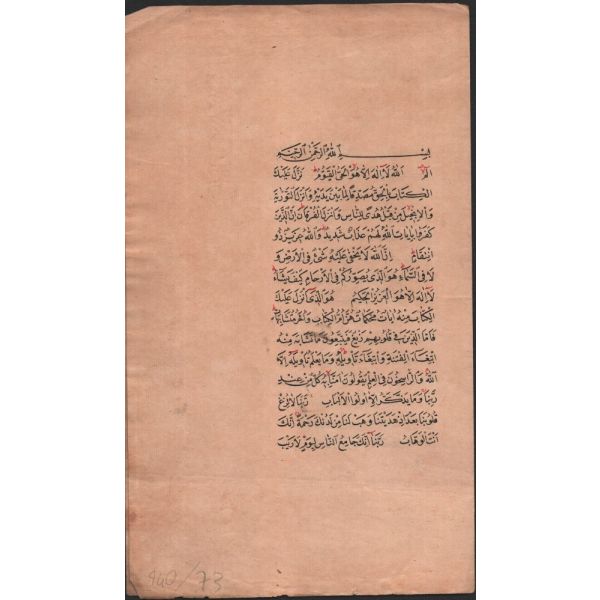 بسم الله الرحمن الرحيم
الم الله لا اله الا هو الحي القيوم نزل عليك
الكتاب بالحق مصدقا لما بين يديه وانزل التورية
والانجيل من قبل هدى للناس وانزل الفرقان ان الذين
كفروا بايات الله لهم عذاب شديد والله عزيز ذو
انتقام ان الله لا يخفى عليه شئ في الارض و
لا في السماء هو الذي يصوركم في الارحام كيف يشاء
لا اله الا هو العزيز الحكيم هو الذي انزل عليك
الكتاب منه ايات محكمات هن ام الكتاب واخر متشابهات
فاما الذين في قلوبهم زيغ فيتبعون ما تشابه منه
ابتغاء الفتنة وابتغاء تاويله وما يعلم تاويله الا
الله والراسخون في العلم يقولون امنا به كل من عند
ربنا وما يذكر الا اولوا الالباب ربنا لا تزغ
قلوبنا بعد اذ هديتنا وهب لنا من لدنك رحمة انك
انت الوهاب ربنا انك جامع الناس ليوم لا ريب
940/73